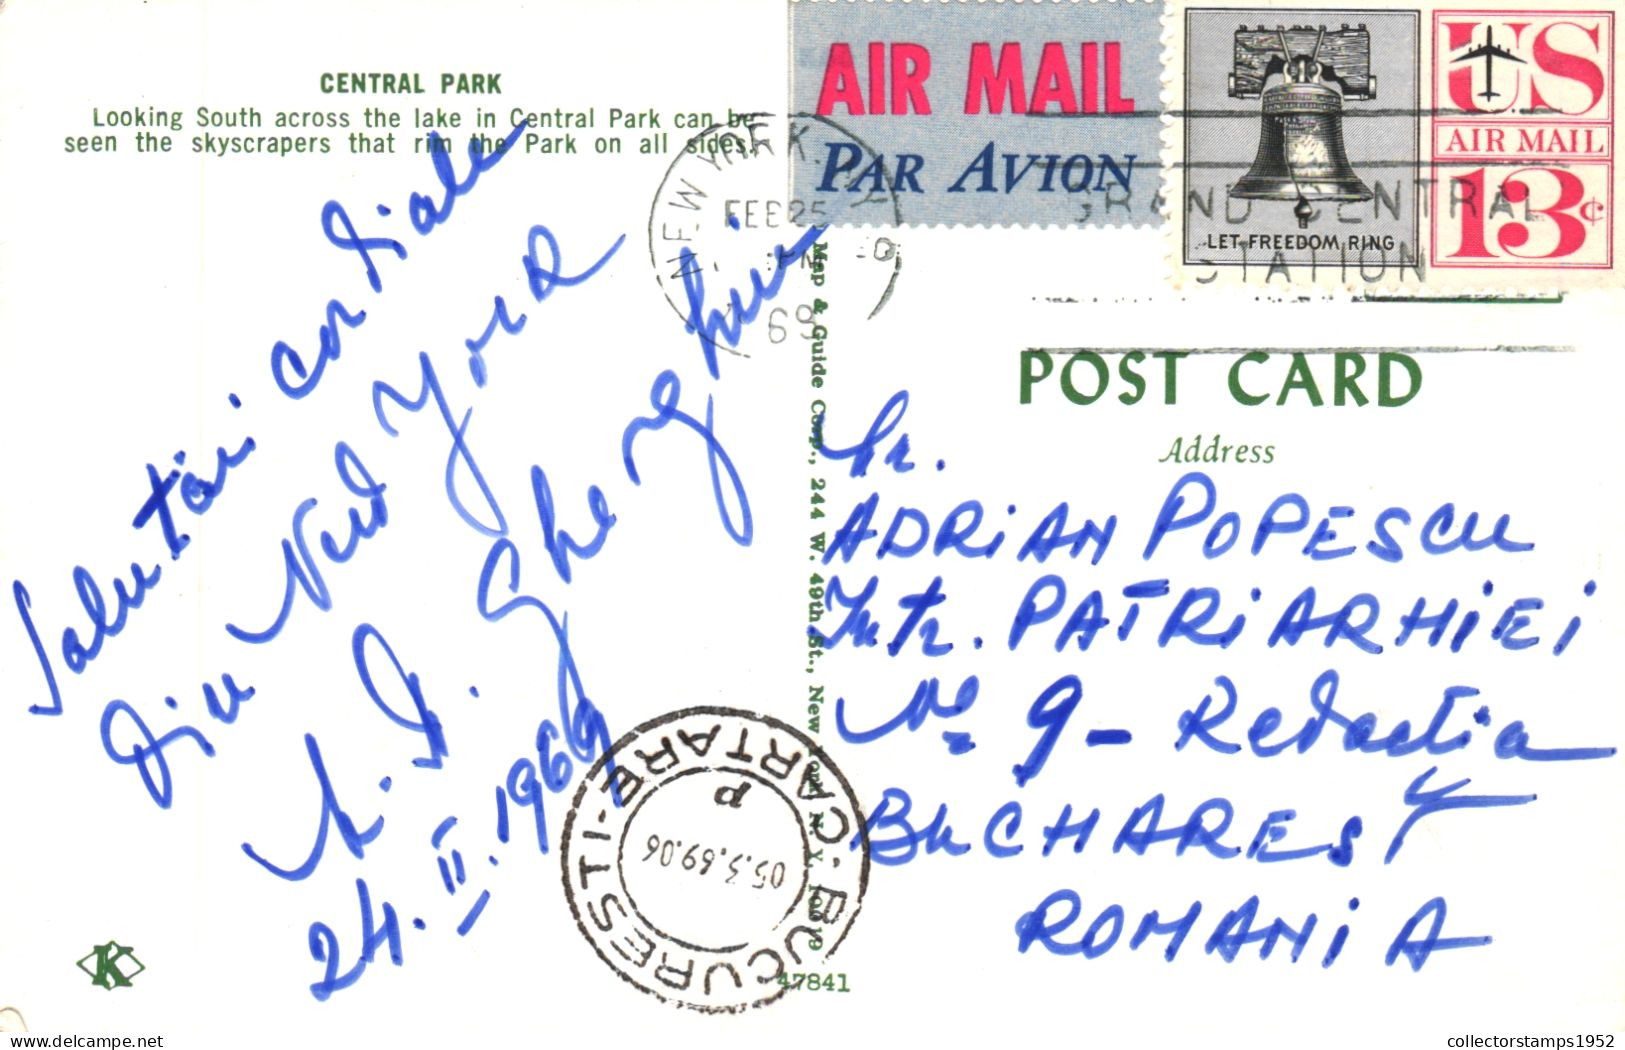 CENTRAL PARK
Looking South across the lake in Central Park can be
seen the skyscrapers that rim the Park on all sides.
AIR MAIL
PAR AVION
LET FREEDOM RING
US
AIR MAIL
13¢
NEW YORK, N.Y.
FEB 25
PM
1969
GRAND CENTRAL
STATION
Salutări cordiale
din New York
Gheorghiu
24.II.1969
Map & Guide Corp., 244 W. 49th St., New York, N. Y. 10019
POST CARD
Address
ADRiAN POPESCU
Intr. PATRiARHiEi
No 9 - Redactia
BUCHAREST
ROMANiA
BUCURESTI-
CARTARE
P
05.3.69.06
K
47841
collectorstamps1952